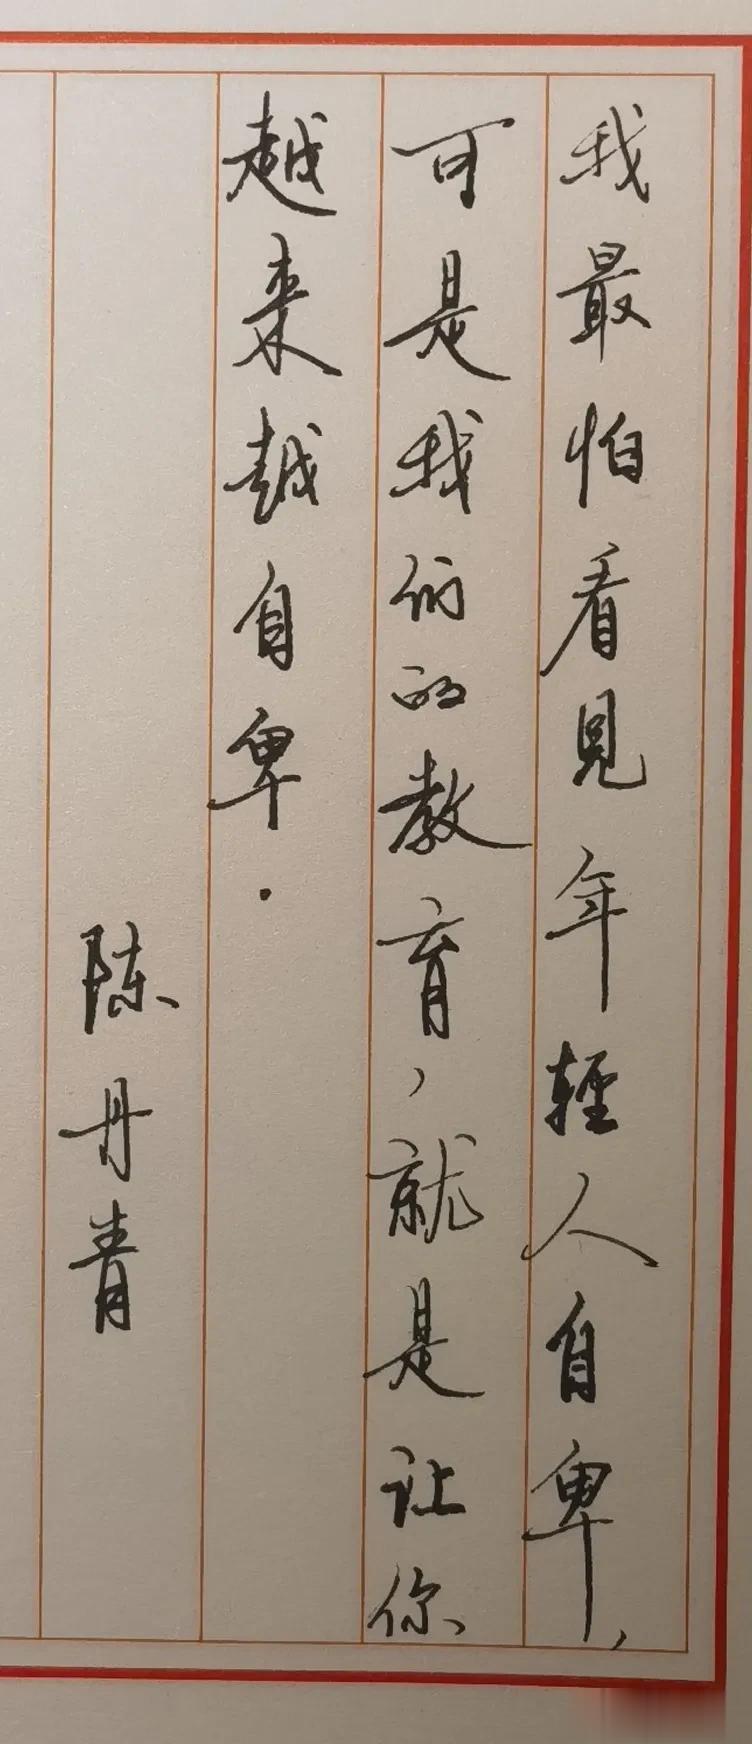 我最怕看見年輕人自卑，
可是我们的教育，就是让你
越来越自卑.
陈丹青